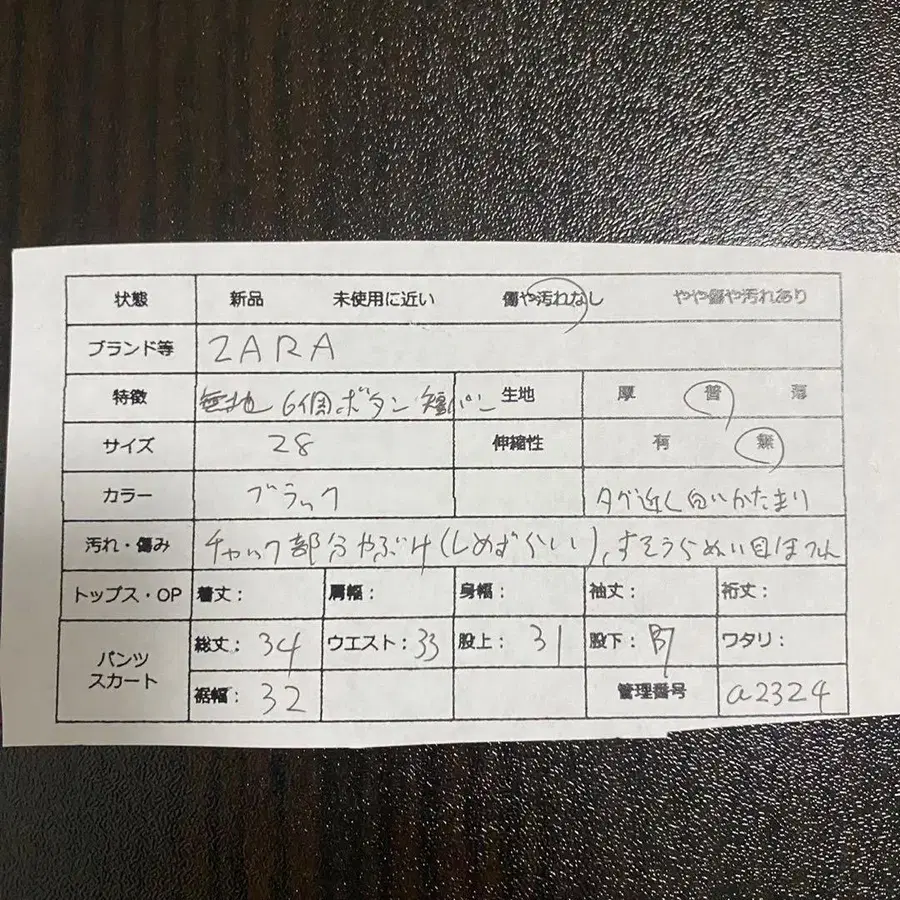 状態 新品 未使用に近い 傷や汚れなし やや傷や汚れあり
ブランド等 ZARA
特徴 無地 6個ボタン 短パン 生地 厚 普 薄
サイズ 28 伸縮性 有 無
カラー ブラック タグ近く白いかたまり
汚れ・傷み チャック部分やぶけ(しめずらい),すそうらぬい目ほつれ
トップス・OP 着丈: 肩幅: 身幅: 袖丈: 裄丈:
パンツ スカート 総丈: 34 ウエスト: 33 股上: 31 股下: ワタリ:
裾幅: 32 管理番号 a2324